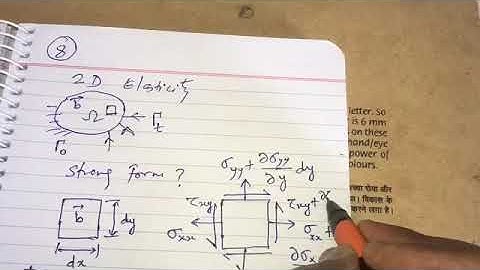 8
2D Elasticity
b
Ω
Γt
Γo
strong form ?
σyy + ∂σyy/∂y dy
b
dy
dx
τxy
σxx
τxy +
σxx +
∂σx
letter. So
is 6 mm
on these
hand/eye
power of
colours.